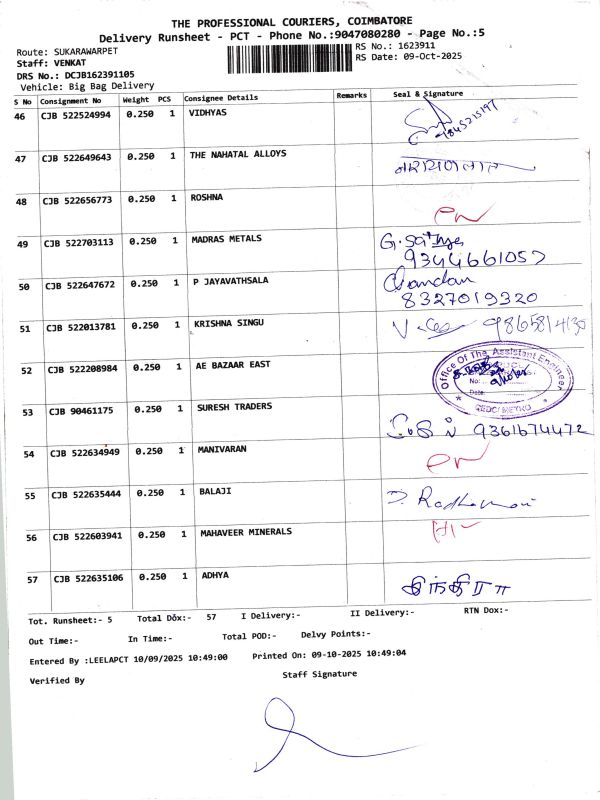 THE PROFESSIONAL COURIERS, COIMBATORE
Delivery Runsheet - PCT - Phone No.:9047080280 - Page No.:5
Route: SUKARAWARPET
RS No.: 1623911
Staff: VENKAT
RS Date: 09-Oct-2025
DRS No.: DCJB162391105
Vehicle: Big Bag Delivery
S No Consignment No Weight PCS Consignee Details Remarks Seal & Signature
46 CJB 522524994 0.250 1 VIDHYAS
47 CJB 522649643 0.250 1 THE NAHATAL ALLOYS
48 CJB 522656773 0.250 1 ROSHNA
49 CJB 522703113 0.250 1 MADRAS METALS G. Sathya
9344661057
50 CJB 522647672 0.250 1 P JAYAVATHSALA Chandan
8327019320
51 CJB 522013781 0.250 1 KRISHNA SINGU 9865814130
52 CJB 522208984 0.250 1 AE BAZAAR EAST Office Of The Assistant Engineer
No:
Date:
53 CJB 90461175 0.250 1 SURESH TRADERS 9361674472
54 CJB 522634949 0.250 1 MANIVARAN
55 CJB 522635444 0.250 1 BALAJI
56 CJB 522603941 0.250 1 MAHAVEER MINERALS
57 CJB 522635106 0.250 1 ADHYA இந்திரா
Tot. Runsheet:- 5 Total Dox:- 57 I Delivery:- II Delivery:- RTN Dox:-
Out Time:- In Time:- Total POD:- Delvy Points:-
Entered By :LEELAPCT 10/09/2025 10:49:00 Printed On: 09-10-2025 10:49:04
Verified By Staff Signature